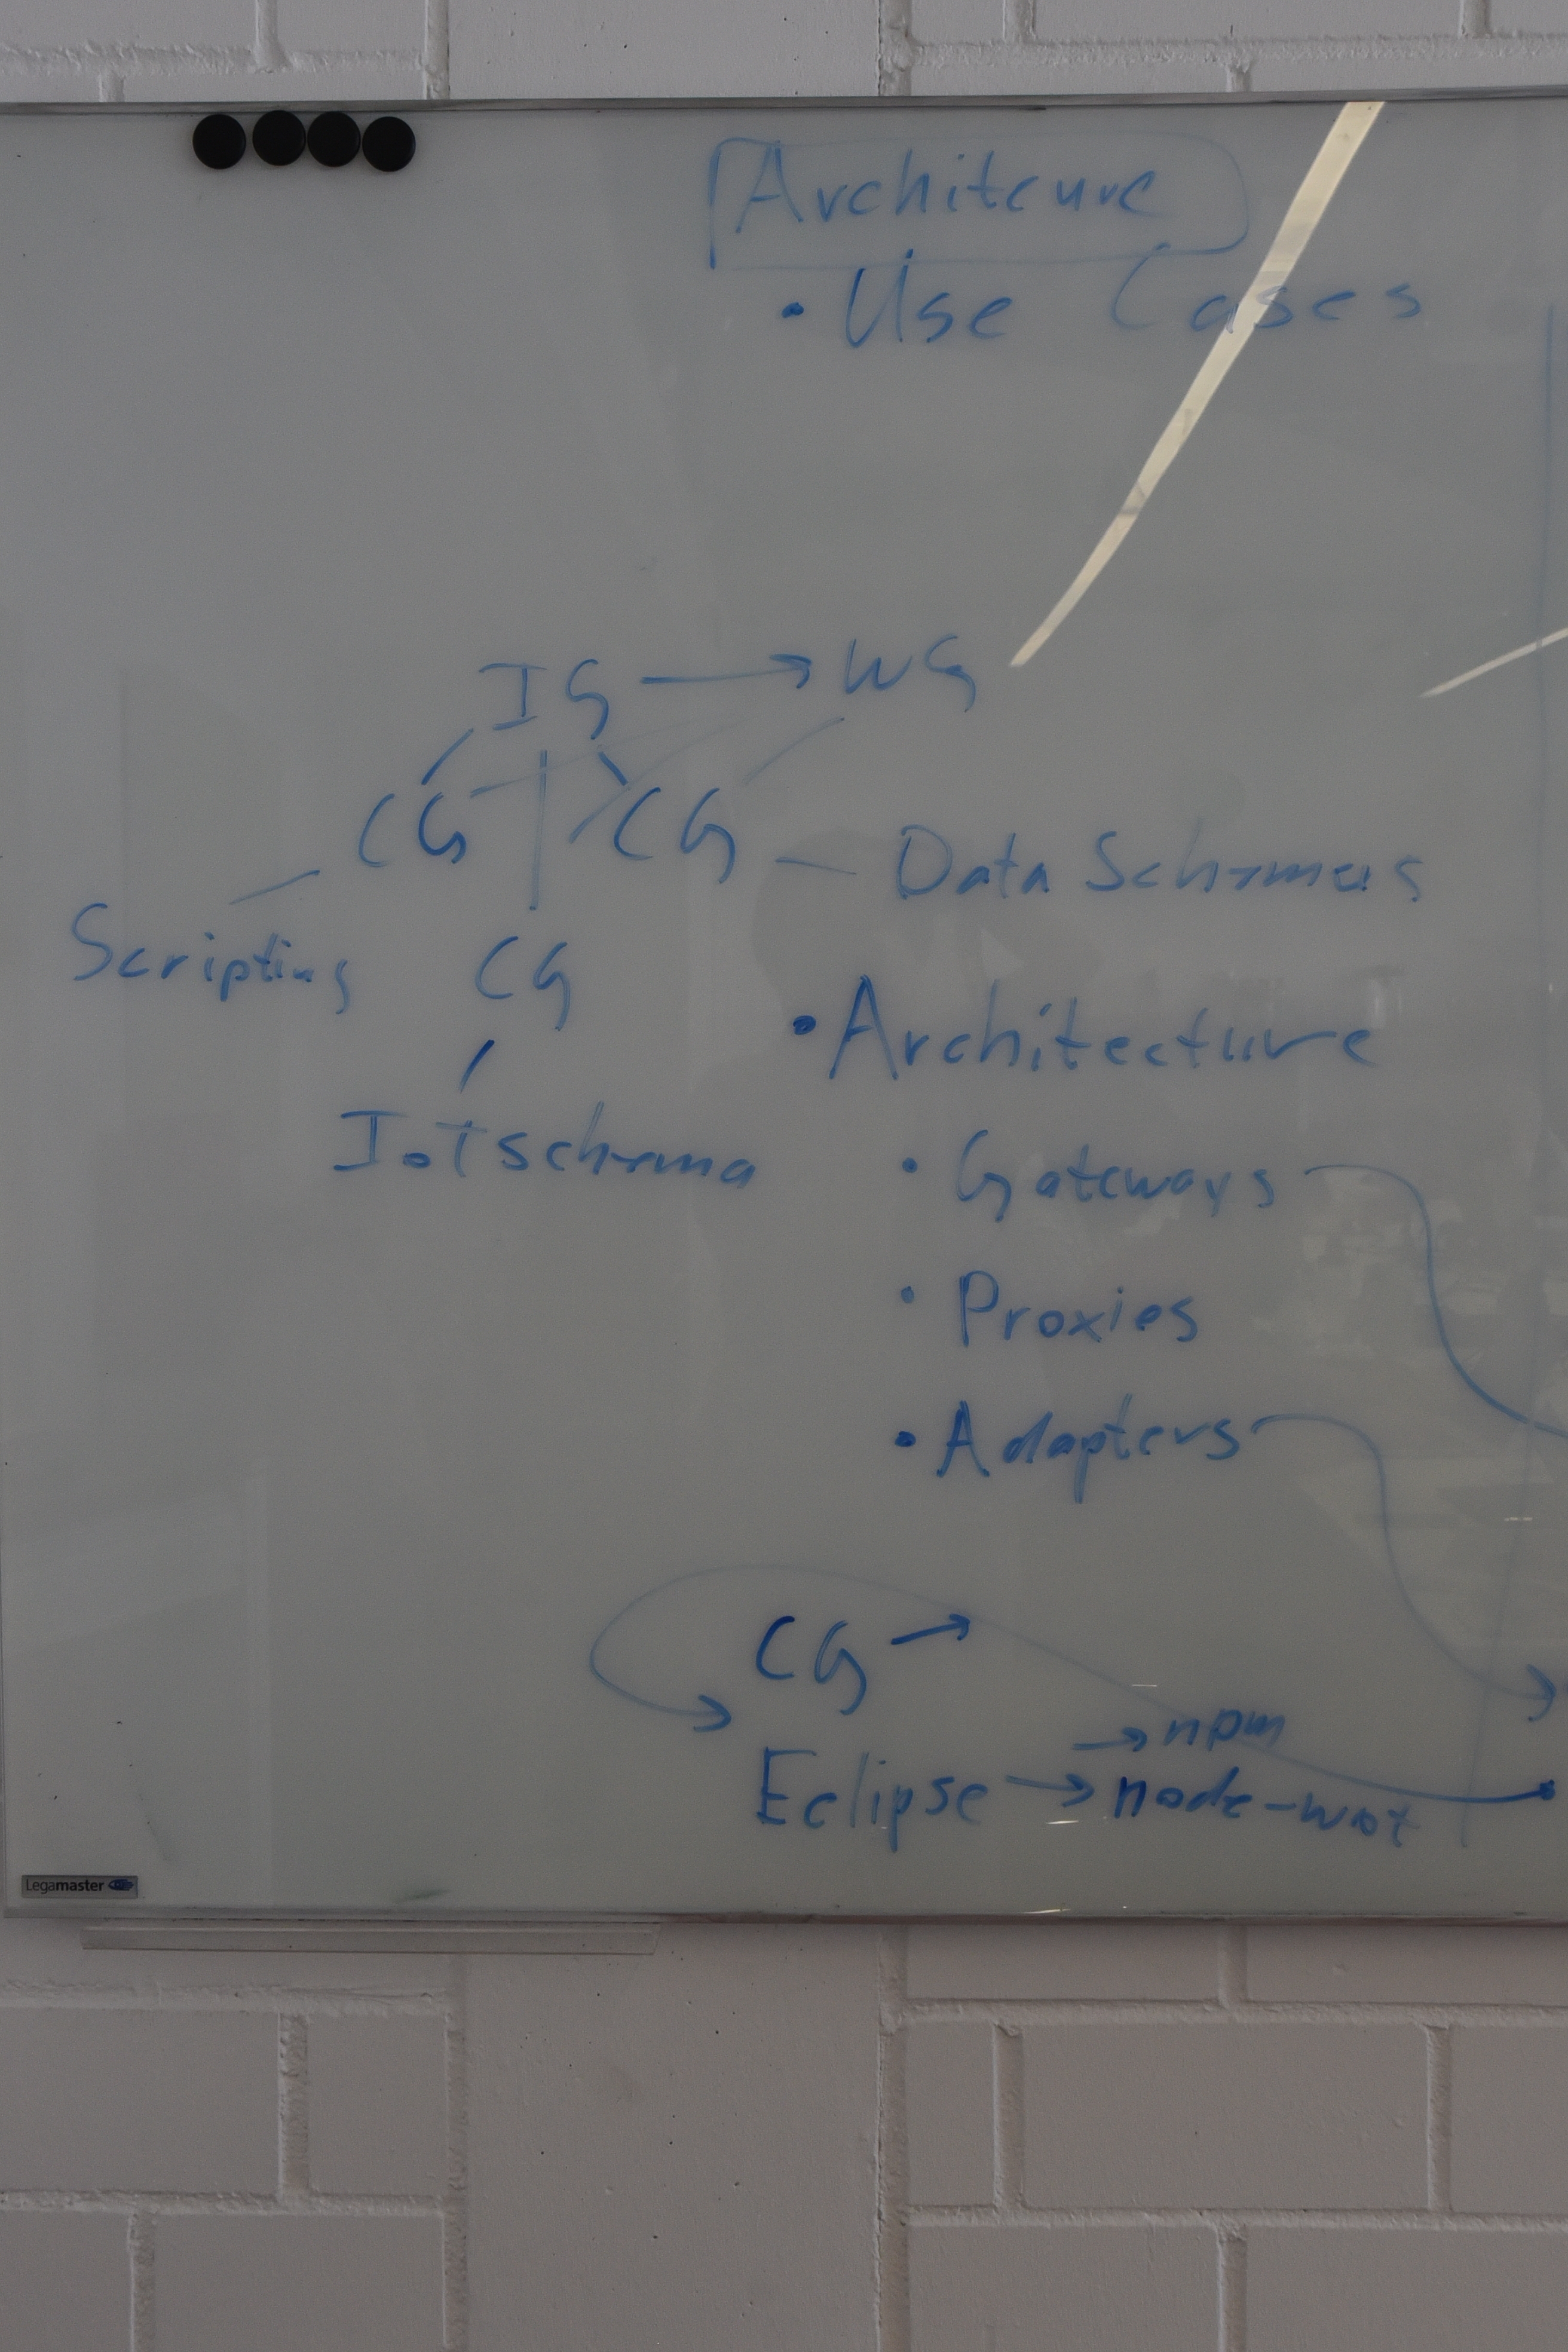 Architcure
• Use Cases
IG → WG
CG CG — Data Schemas
Scripting CG
• Architecture
IoTschema
• Gateways
• Proxies
• Adapters
CG →
→ npm
Eclipse → node-wot
Legamaster